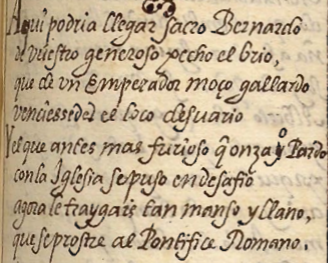 Aqui podria llegar sacro Bernardo
de vuestro generoso pecho el brio,
que de vn Emperador moço gallardo
venciessedes el loco desuario
Y el que antes mas furioso q̃ onza y o Pardo
con la Iglesia se puso en desafio
agora le traygais tan manso y llano,
que se prostre al Pontifice Romano.